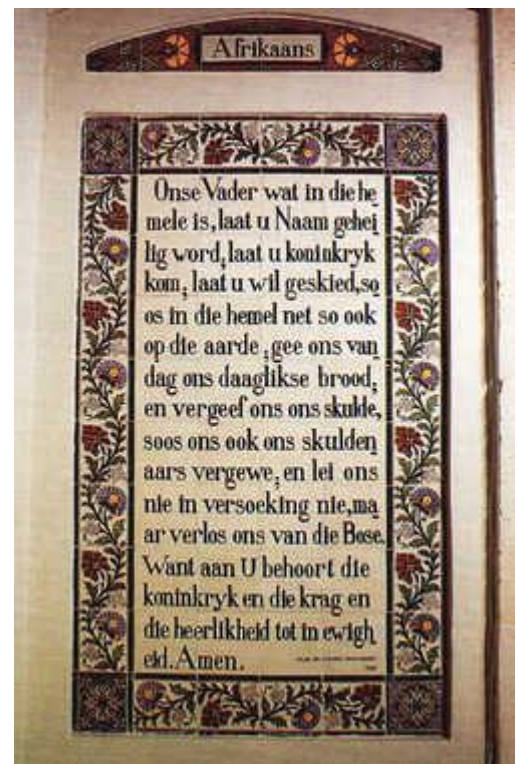 Afrikaans
Onse Vader wat in die he
mele is, laat u Naam gehei
lig word, laat u koninkryk
kom, laat u wil geskied, so
os in die hemel net so ook
op die aarde, gee ons van
dag ons daaglikse brood,
en vergeef ons ons skulde,
soos ons ook ons skulden
aars vergewe, en lei ons
nie in versoeking nie, ma
ar verlos ons van die Bose.
Want aan U behoort die
koninkryk en die krag en
die heerlikheid tot in ewigh
eid. Amen.